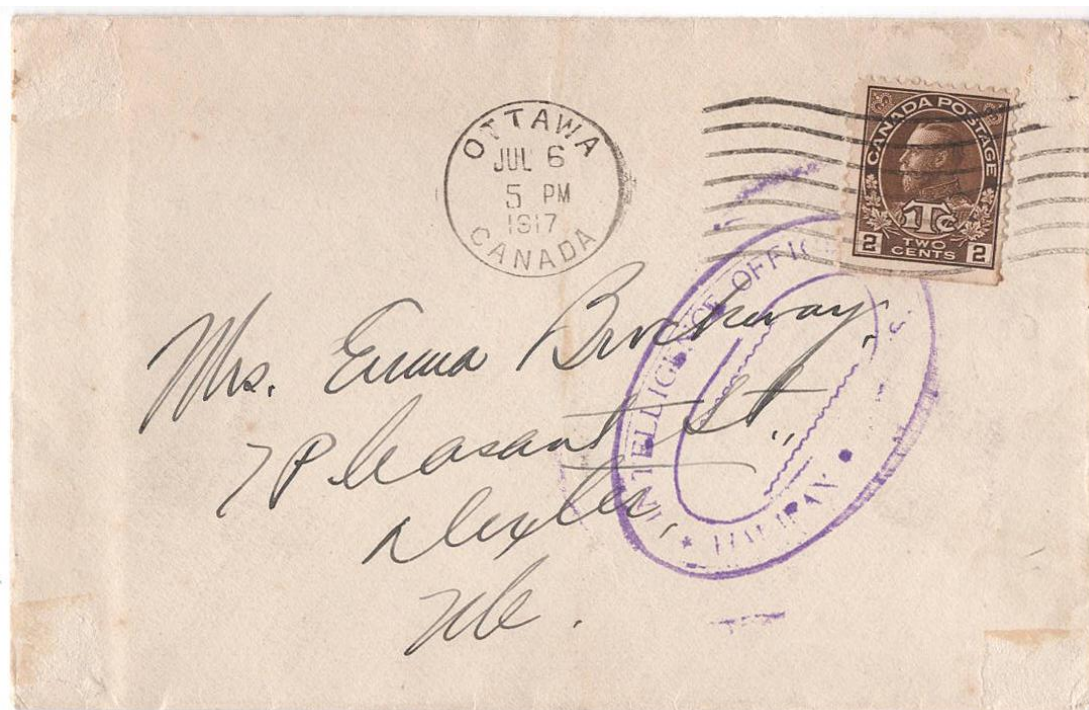 OTTAWA
JUL 6
5 PM
1917
CANADA
CANADA POSTAGE
1Tc
2 TWO CENTS 2
INTELLIGENCE OFFICE
HALIFAX
Mrs. Emma Brockway.
7 Pleasant St.,
Dexter
Me.